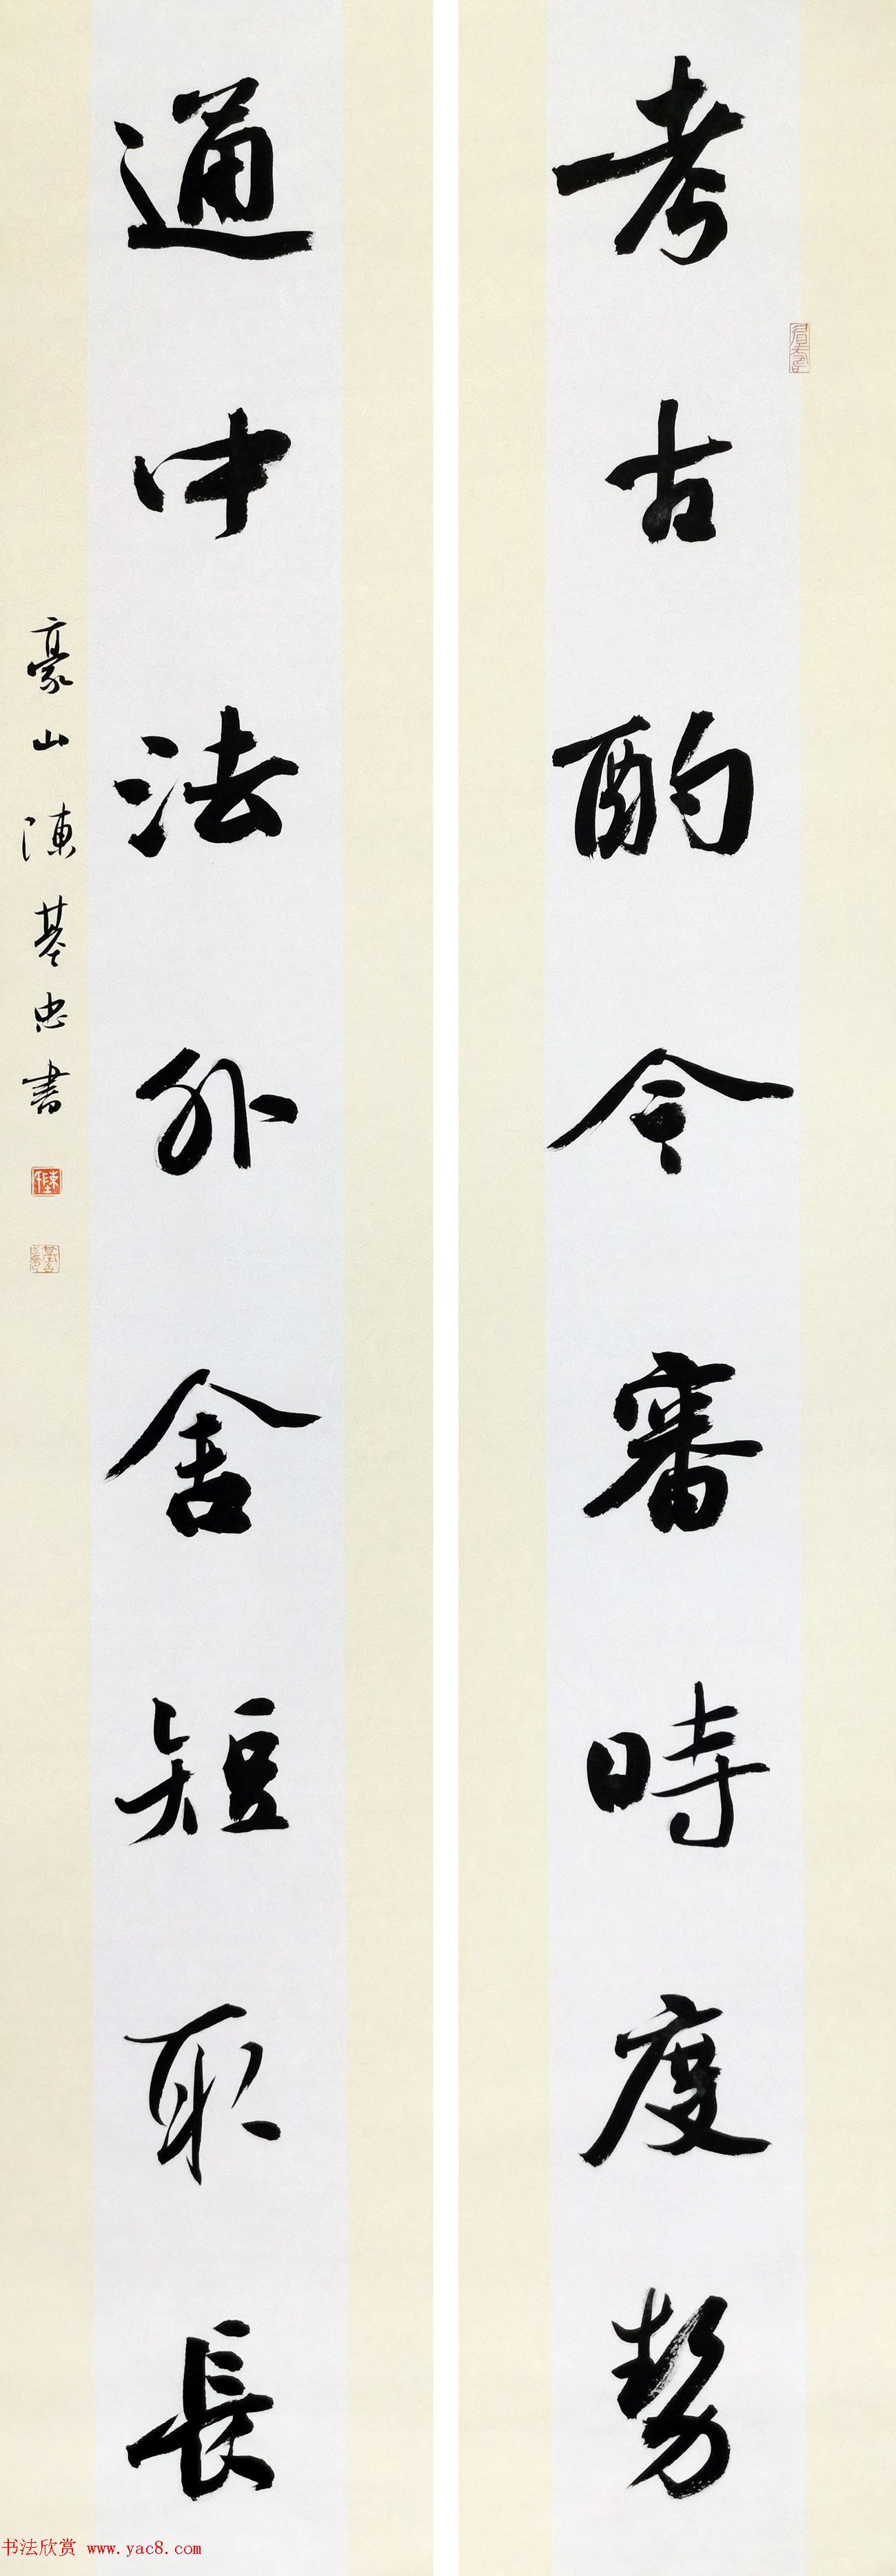 考古酌今審時度勢
通中法外舍短取長
豪山陳基忠書
书法欣赏 www.yac8.com